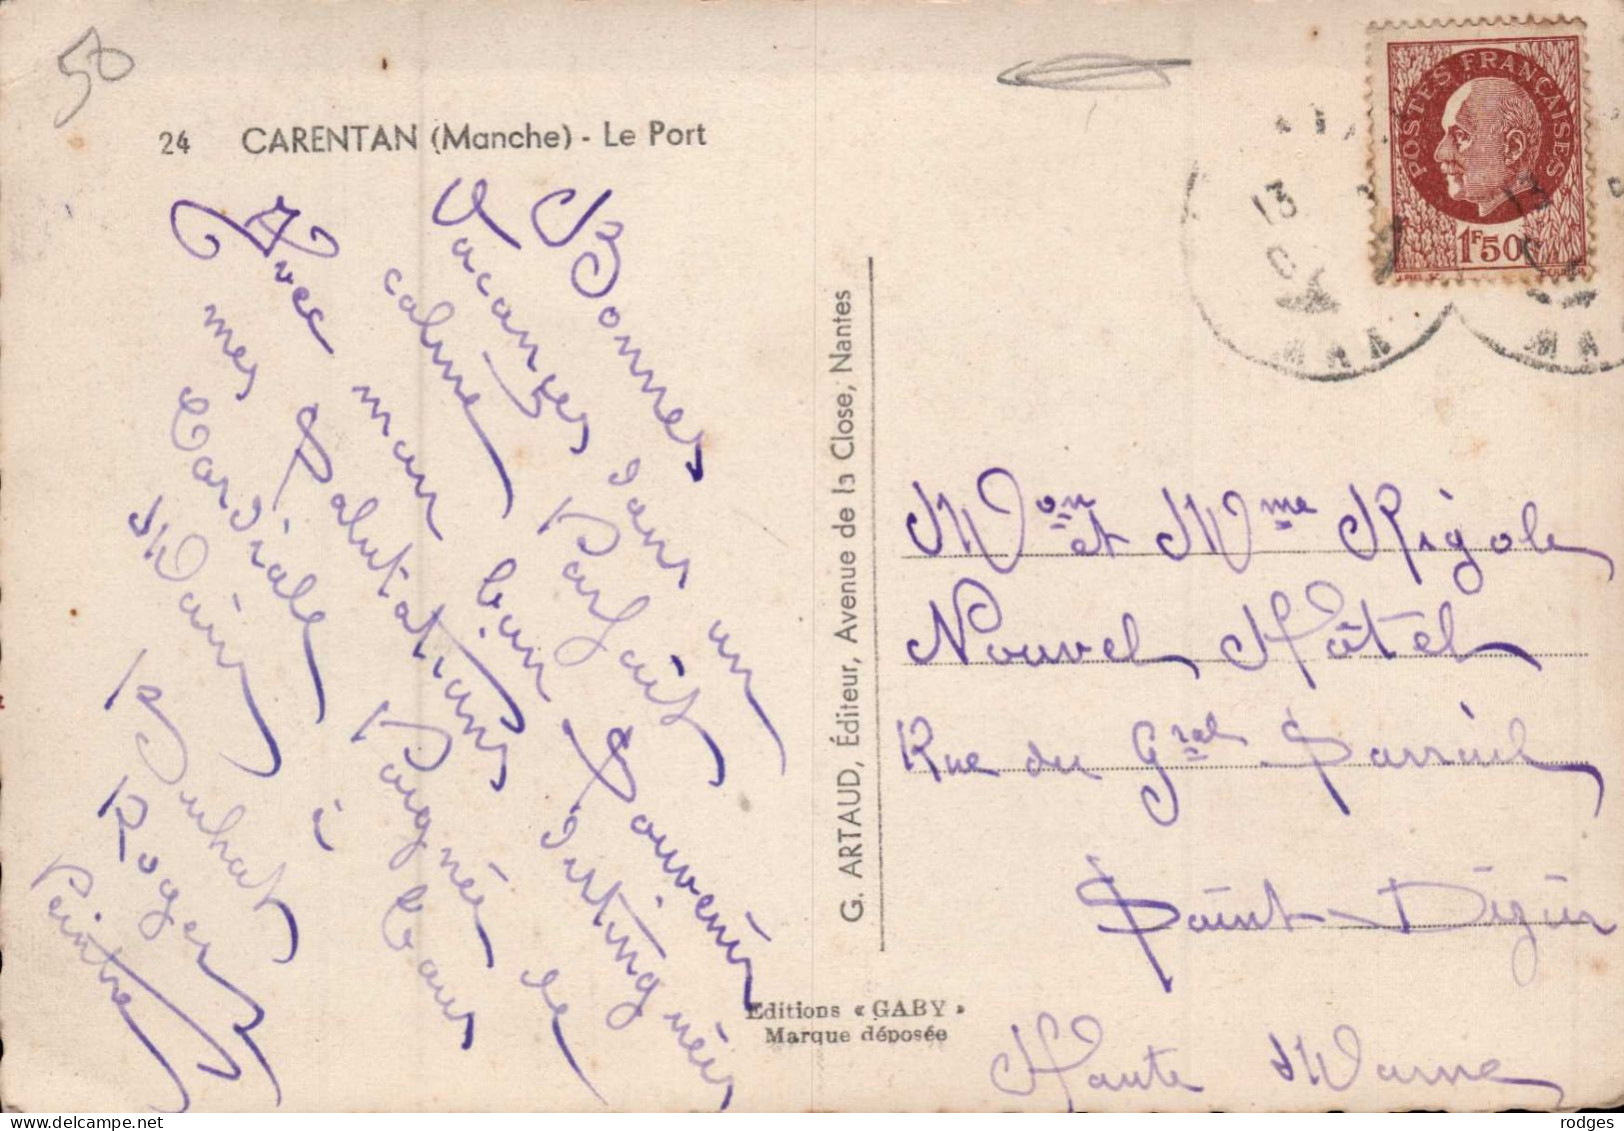 50
24 CARENTAN (Manche) - Le Port
Bonnes
Vacances dans un
calme Parfait
Avec mon bon Souvenir
mes Salutations distinguées
Cordiale Poignée de
Main à tous
Buhot
Roger
Peintre
G. ARTAUD, Éditeur, Avenue de la Close, Nantes
Editions « GABY »
Marque déposée
POSTES FRANÇAISES
1F50
13
13
Mon et Mme Rigole
Nouvel Hôtel
Rue du Gral Sarrail
Saint-Dizier
Haute Marne
rodges
delcampe.net